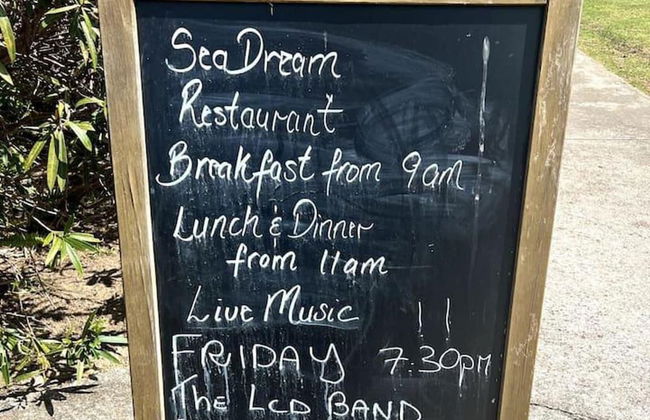 SeaDream
Restaurant
Breakfast from 9am
Lunch & Dinner
from 11am
Live Music !!
FRIDAY 7.30pm
THE LCD BAND